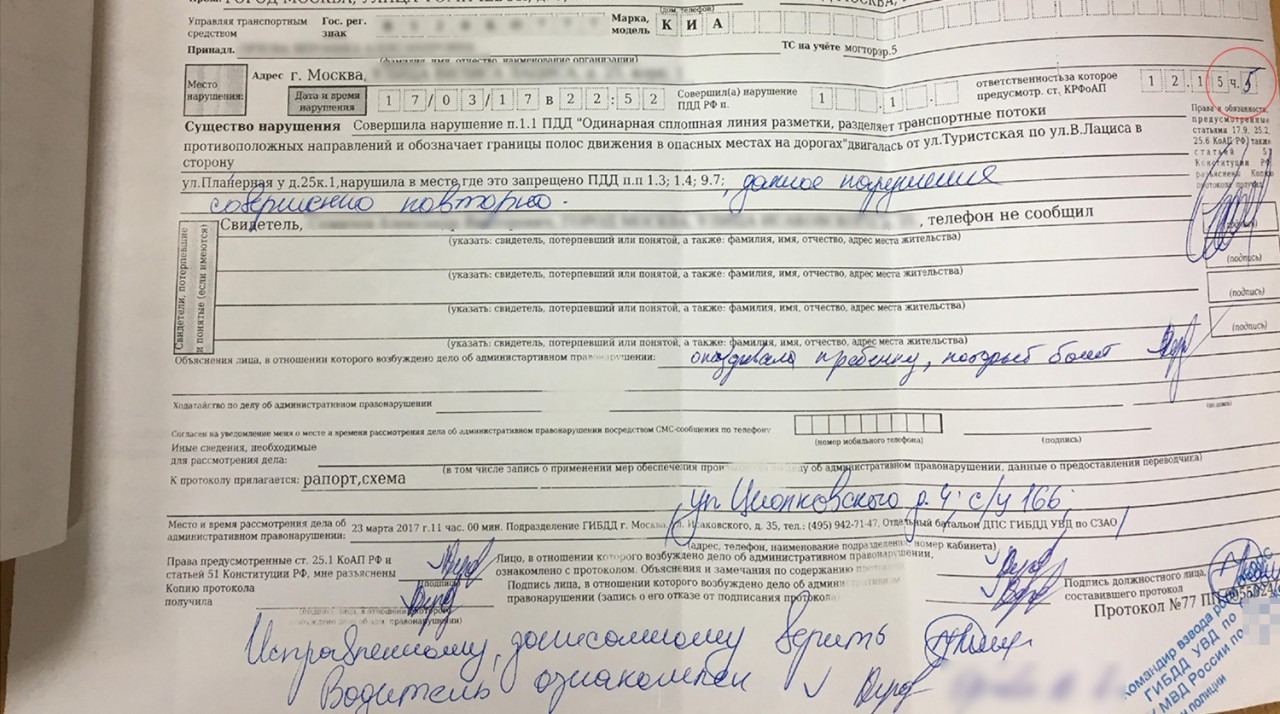 ГОРОД МОСКВА, УЛИЦА
(дом, телефон)
Управляя транспортным средством Гос. рег. знак Марка, модель К И А
Принадл. ТС на учёте могторэр.5
(фамилия, имя, отчество, наименование организации)
Место нарушения: Адрес г. Москва,
Дата и время нарушения 1 7 / 0 3 / 1 7 в 2 2 : 5 2 Совершил(а) нарушение ПДД РФ п. 1 . 1 . ответственность за которое предусмотр. ст. КРФоАП 1 2 . 1 5 ч. 5
Права и обязанности,
предусмотренные
статьями 17.9, 25.2,
25.6 КоАП РФ, также
статьей 51
Конституции РФ
разъяснены Копию
протокола получил
Существо нарушения Совершила нарушение 1.1.1 ПДД "Одинарная сплошная линия разметки, разделяет транспортные потоки
противоположных направлений и обозначает границы полос движения в опасных местах на дорогах"двигалась от ул.Туристская по ул.В.Лациса в
сторону
ул.Планерная у д.25к.1,нарушила в месте где это запрещено ПДД п.п 1.3; 1.4; 9.7; данное нарушение
совершенно повторно.
Свидетели, потерпевшие и понятые (если имеются)
Свидетель, , телефон не сообщил
(указать: свидетель, потерпевший или понятой, а также: фамилия, имя, отчество, адрес места жительства) (подпись)
(указать: свидетель, потерпевший или понятой, а также: фамилия, имя, отчество, адрес места жительства) (подпись)
(указать: свидетель, потерпевший или понятой, а также: фамилия, имя, отчество, адрес места жительства) (подпись)
(указать: свидетель, потерпевший или понятой, а также: фамилия, имя, отчество, адрес места жительства)
Объяснения лица, в отношении которого возбуждено дело об административном правонарушении: опаздывала к ребенку, который болеет
Ходатайство по делу об административном правонарушении
Согласен на уведомление меня о месте и времени рассмотрения дела об административном правонарушении посредством СМС-сообщения по телефону
(номер мобильного телефона) (подпись)
Иные сведения, необходимые для рассмотрения дела:
(в том числе запись о применении мер обеспечения по делу об административном правонарушении, данные о предоставлении переводчика)
К протоколу прилагается: рапорт,схема
ул Циолковского д. 4 с/у 166
Место и время рассмотрения дела об административном правонарушении: 23 марта 2017 г.11 час. 00 мин. Подразделение ГИБДД г. Москва, ул. Исаковского, д. 35, тел.: (495) 942-71-47, Отдельный батальон ДПС ГИБДД УВД по СЗАО
(адрес, телефон, наименование подразделения, номер кабинета)
Права предусмотренные ст. 25.1 КоАП РФ и статьей 51 Конституции РФ, мне разъяснены
(подпись)
Лицо, в отношении которого возбуждено дело об административном правонарушении, ознакомлено с протоколом. Объяснения и замечания по содержанию
Копию протокола получила
Подпись лица, в отношении которого возбуждено дело об правонарушении (запись о его отказе от подписания протокола)
Подпись должностного лица, составившего протокол
Протокол №77
Исправленному, дописанному верить
Водитель ознакомлен
Командир взвода
ГИБДД УВД по
МВД России по
полиции